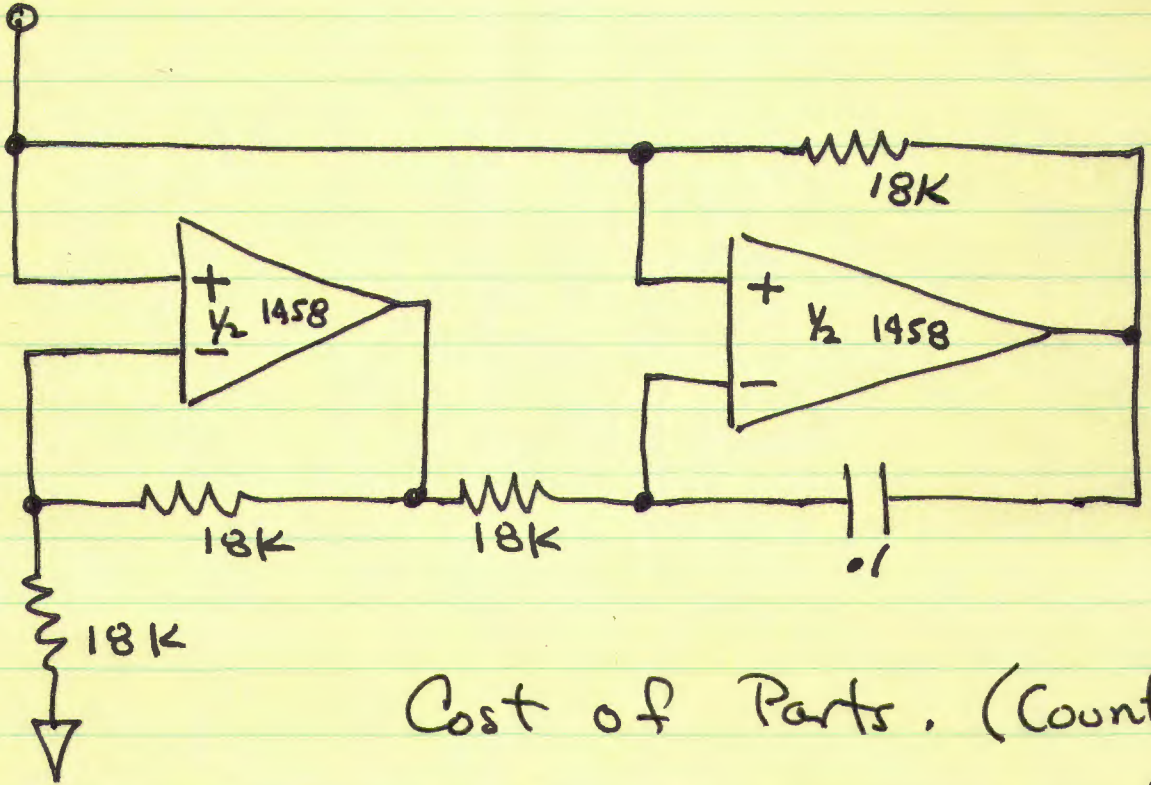 18K
+
½ 1458
−
+
½ 1458
−
18K
18K
.1
18K
Cost of Parts. (Count